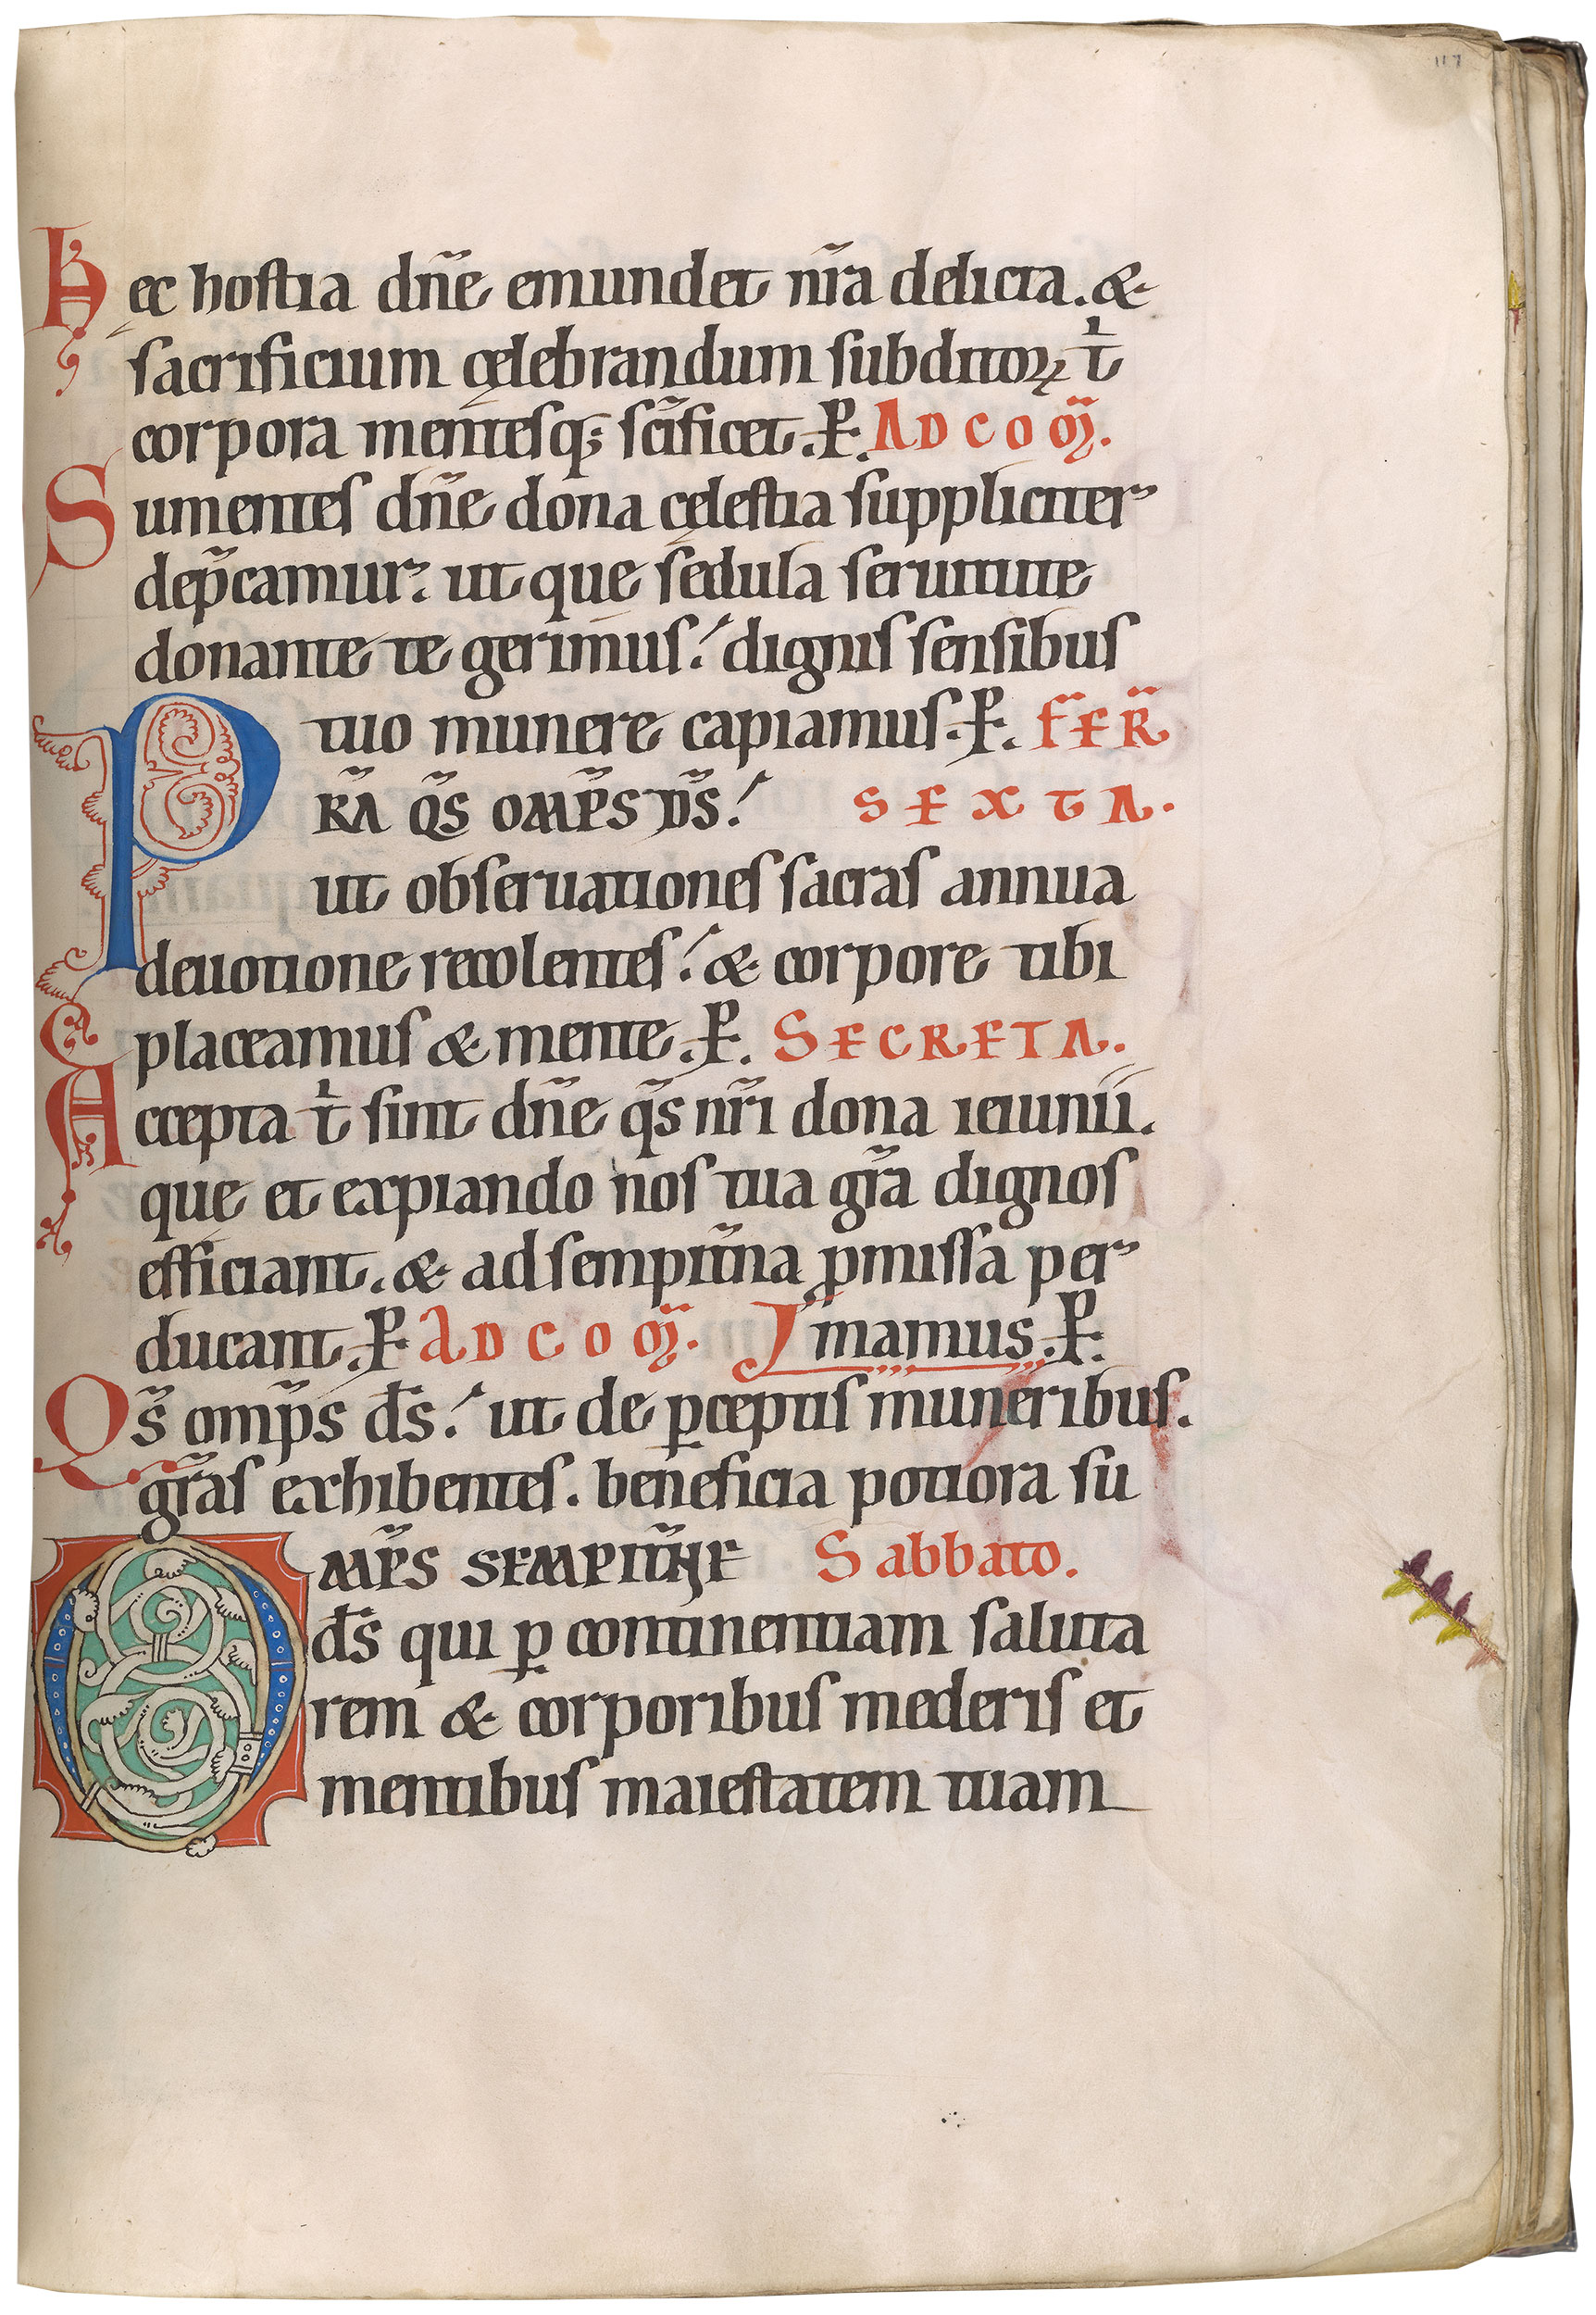 117
Hec hostia dn̄e emundet nr̄a delicta. &
sacrificium cęlebrandum subditoꝝ t̍
corpora mentesq; sc̄ificet. P̵. AD COM̄.
Sumentes dn̄e dona cęlestia suppliciter
dep̄camur. ut que sedula seruitute
donante te gerimus. dignis sensibus
tuo munere capiamus. P̵. FER̄
PR̄A Q̄S OMP̄S D̄S. SEXTA.
ut obseruationes sacras annua
deuotione recolentes. & corpore tibi
placeamus & mente. P̵. SECRETA.
Accepta t̍ sint dn̄e q̄s nr̄i dona ieiunii.
que et expiando nos tua gr̄a dignos
efficiant. & ad sempit̄na ꝓmissa per
ducant. P̵. AD COM̄. mamus. P̵.
Qs̄ omp̄s d̄s. ut de ꝑceptis muneribus.
gr̄as exhibentes. beneficia potiora su
OMP̄S SEMPIT̄NE Sabbato.
d̄s qui ꝑ continentiam saluta
rem & corporibus mederis et
mentibus maiestatem tuam